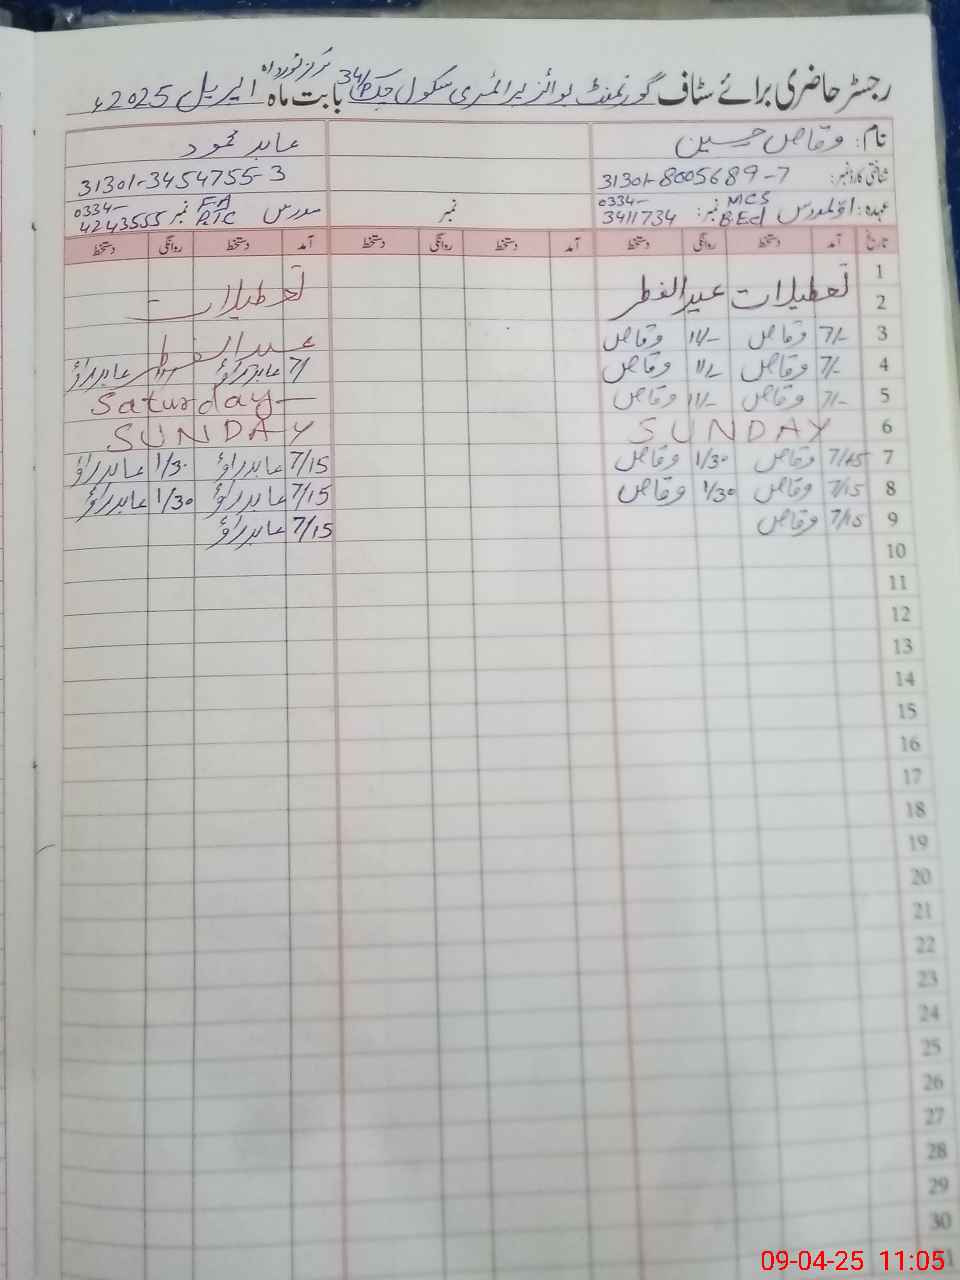 رجسٹر حاضری برائے سٹاف گورنمنٹ بوائز پرائمری سکول چک 34/P مرکز بابت ماہ اپریل 2025ء
نام: وقاص حسین عابد محمود
شناختی کارڈ نمبر: 31301-8005689-7 31301-3454755-3
عہدہ: MCS B.Ed نمبر: 0334-3411734 نمبر مدرس FA PTC نمبر 0334-4243555
تاریخ آمد دستخط روانگی دستخط آمد دستخط روانگی دستخط آمد دستخط روانگی دستخط
1 تعطیلات عید الفطر تعطیلات
2
3 7/- وقاص 11/- وقاص عید الفطر
4 7/- وقاص 11/- وقاص 7/ عابد راؤ 11/ عابد راؤ
5 7/- وقاص 11/- وقاص Saturday
6 SUNDAY SUNDAY
7 7/15 وقاص 1/30 وقاص 7/15 عابد راؤ 1/30 عابد راؤ
8 7/15 وقاص 1/30 وقاص 7/15 عابد راؤ 1/30 عابد راؤ
9 7/15 وقاص 7/15 عابد راؤ
10
11
12
13
14
15
16
17
18
19
20
21
22
23
24
25
26
27
28
29
30
09-04-25 11:05